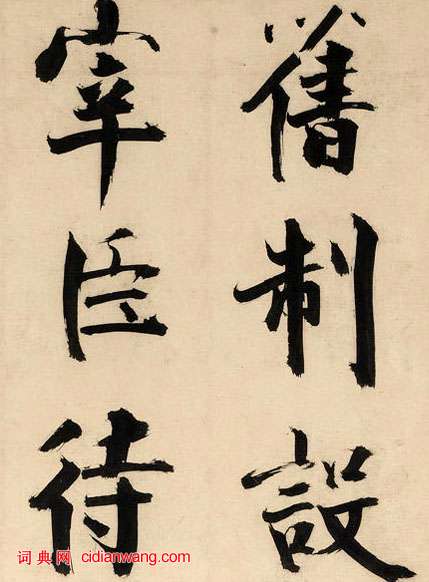 舊制設
宰臣待
词典网 cidianwang.com